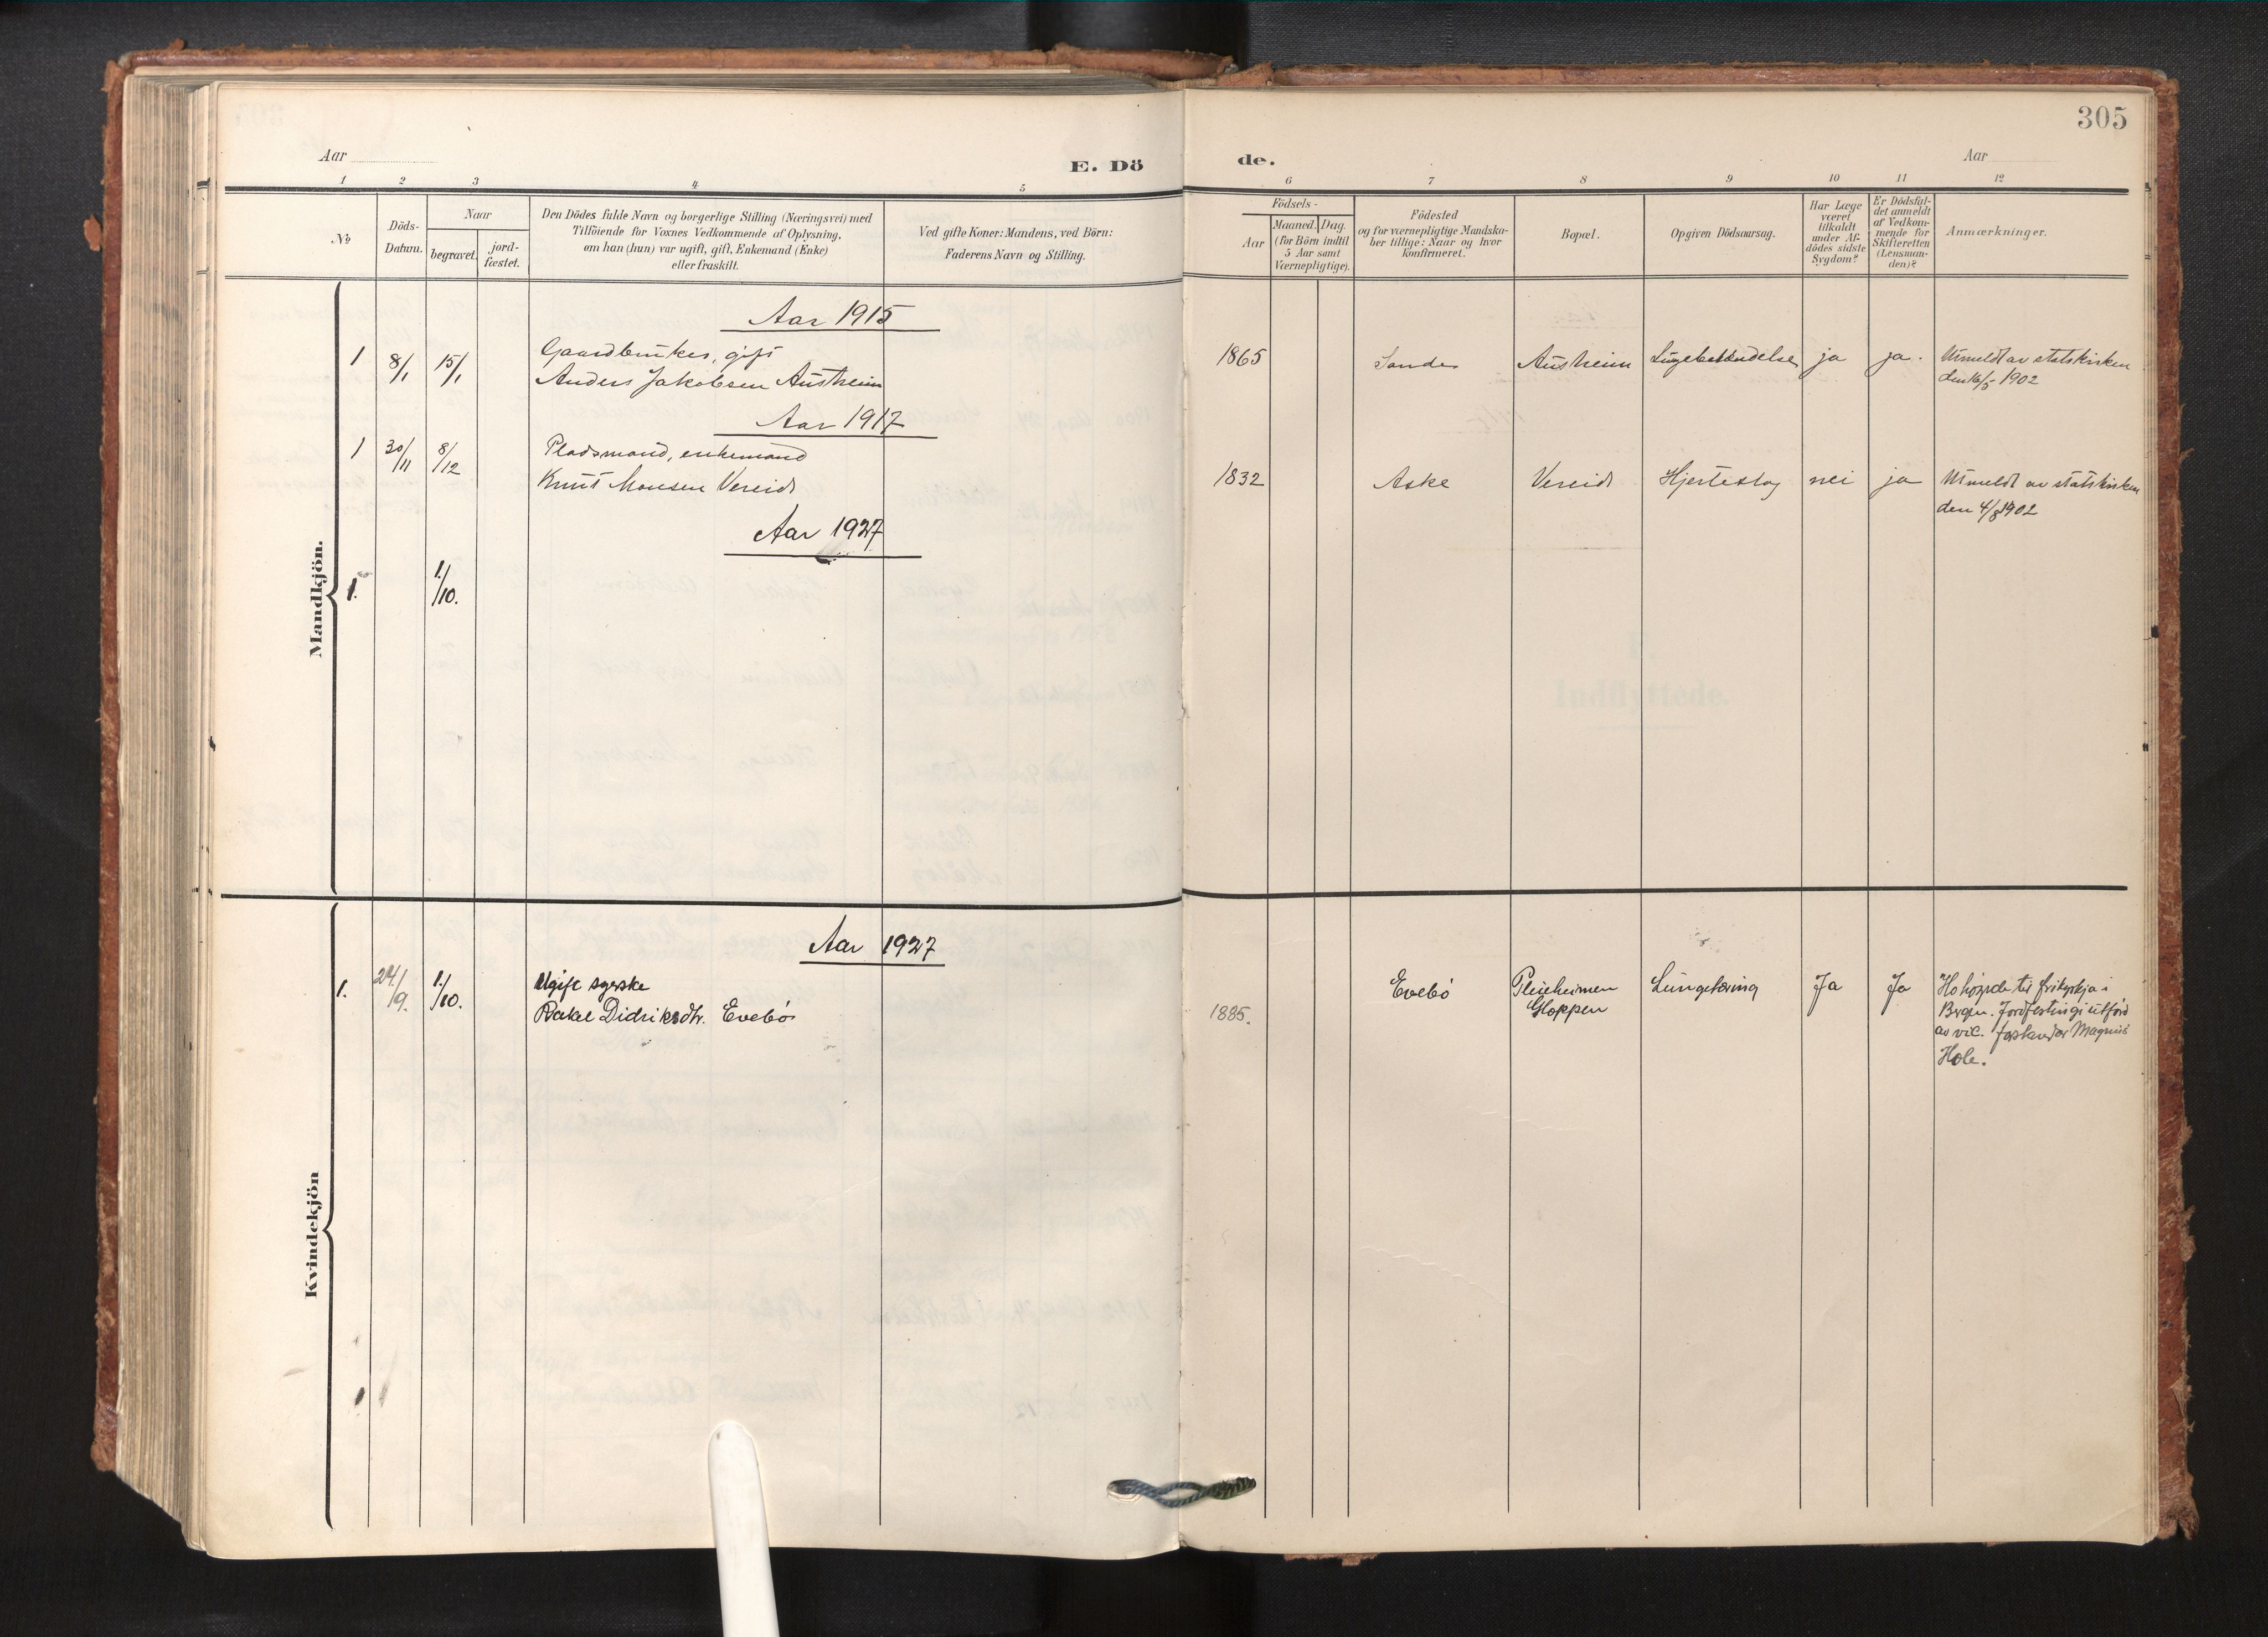 305
Aar
E. Dö
de.
Aar
1 2 3 4 5 6 7 8 9 10 11 12
No
Döds-
Datum.
Naar
begravet.
jord-
fæstet.
Den Dödes fulde Navn og borgerlige Stilling (Næringsvei) med
Tilföiende for Voxnes Vedkommende af Oplysning,
om han (hun) var ugift, gift, Enkemand (Enke)
eller fraskilt.
Ved gifte Koner: Mandens, ved Börn:
Faderens Navn og Stilling.
Födsels-
Aar
Maaned.
Dag.
(for Börn indtil
5 Aar samt
Værnepligtige).
Födested
og for værnepligtige Mandska-
ber tillige: Naar og hvor
konfirmeret.
Bopæl.
Opgiven Dödsaarsag.
Har Læge
været
tilkaldt
under Af-
dödes sidste
Sygdom?
Er Dödsfal-
det anmeldt
af Vedkom-
mende for
Skifteretten
(Lensman-
den)?
Anmærkninger.
Mandkjön.
Aar 1915
1 8/1 15/1 Gaardbruker, gift
Anders Jakobsen Austreim
1865 Sande Austreim Lungebetændelse ja ja. Utmeldt av statskirken
den 16/5 1902
Aar 1917
1 30/11 8/12 Pladsmand, enkemand
Knut Monsen Vereide
1832 Aske Vereide Hjerteslag nei ja Utmeldt av statskirken
den 4/8 1902
Aar 1927
1. 1./10.
Kvindekjön
Aar 1927
1. 24/9. 1./10. Ugift syerske
Rakel Didriksdtr. Evebö
1885. Evebö Pleieheimen
Gloppen
Lungetæring Ja Ja Ho høyrde til frikyrkja i
Bergen. Jordfestingi utførd
av vic. forstandar Magnus
Hole.